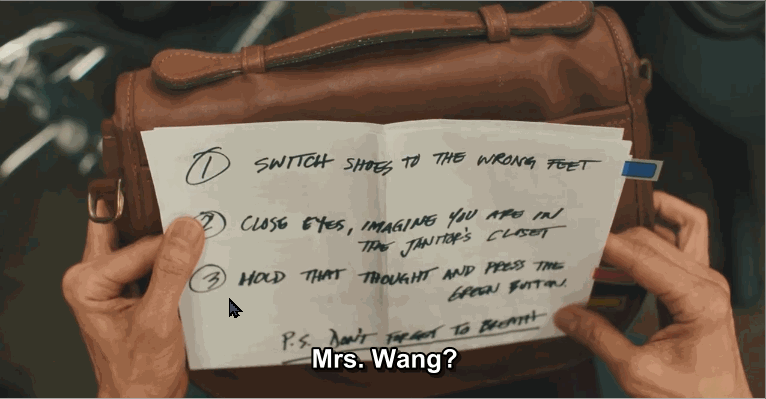 1 SWITCH SHOES TO THE WRONG FEET
2 CLOSE EYES, IMAGINE YOU ARE IN
THE JANITOR'S CLOSET
3 HOLD THAT THOUGHT AND PRESS THE
GREEN BUTTON.
P.S. DON'T FORGET TO BREATH
Mrs. Wang?